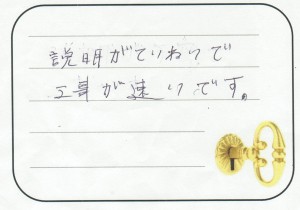 説明がていねいで
工事が速いです。